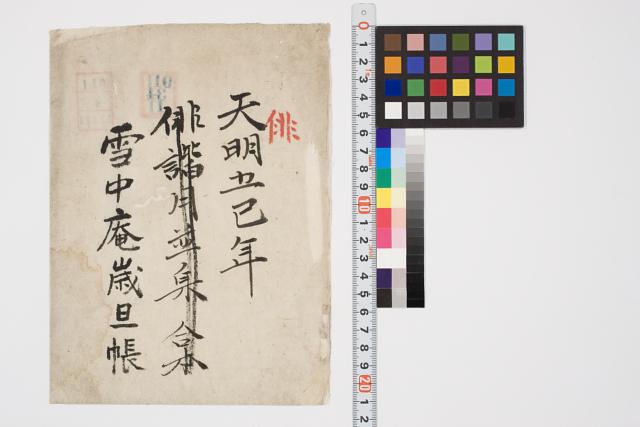 俳
天明五巳年
俳諧月並 合本
雪中庵歳旦帳
0 1 2 3 4 5 6 7 8 9 10 1 2 3 4 5 6 7 8 9 20 1 2